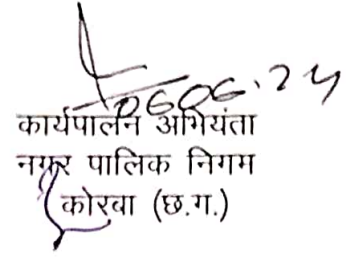 06.06.24
कार्यपालन अभियंता
नगर पालिक निगम
कोरबा (छ.ग.)